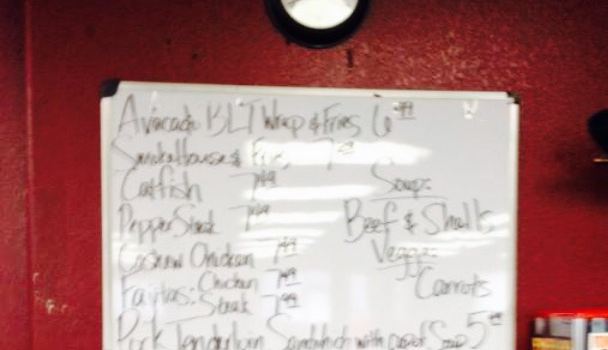 Avacado BLT Wrap & Fries 6.99
SmokeHouse & Fries 7.49
Catfish 7.49
Pepper Steak 7.49
Cashew Chicken 7.49
Fajitas: Chicken 7.49
Steak 7.99
Pork Tenderloin Sandwhich with cup of Soup 5
Soup:
Beef & Shells
Veggie:
Carrots